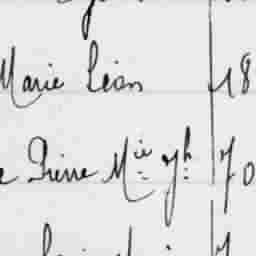 Marie Léon 18
e Pierre M^ie Jh 70